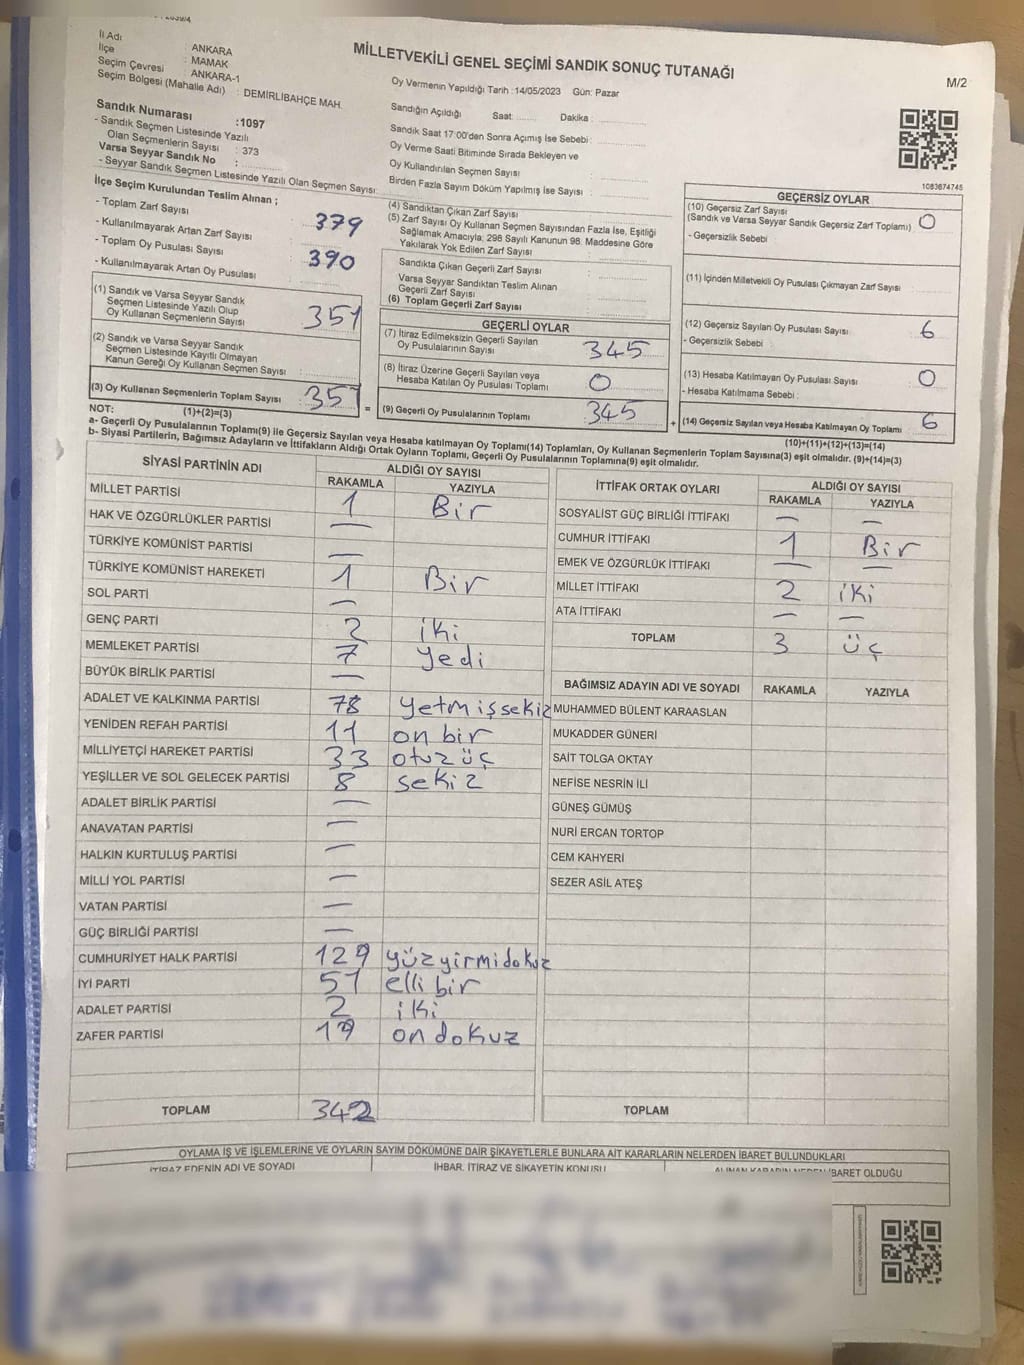 MİLLETVEKİLİ GENEL SEÇİMİ SANDIK SONUÇ TUTANAĞI
M/2
İl Adı : ANKARA
İlçe : MAMAK
Seçim Çevresi : ANKARA-1
Seçim Bölgesi (Mahalle Adı) : DEMİRLİBAHÇE MAH.
Sandık Numarası :1097
- Sandık Seçmen Listesinde Yazılı
Olan Seçmenlerin Sayısı : 373
Varsa Seyyar Sandık No :
- Seyyar Sandık Seçmen Listesinde Yazılı Olan Seçmen Sayısı:
Oy Vermenin Yapıldığı Tarih :14/05/2023 Gün: Pazar
Sandığın Açıldığı Saat: Dakika :
Sandık Saat 17:00'den Sonra Açımış İse Sebebi :
Oy Verme Saati Bitiminde Sırada Bekleyen ve
Oy Kullandırılan Seçmen Sayısı :
Birden Fazla Sayım Döküm Yapılmış İse Sayısı :
1083674745
İlçe Seçim Kurulundan Teslim Alınan ;
- Toplam Zarf Sayısı : 379
- Kullanılmayarak Artan Zarf Sayısı :
- Toplam Oy Pusulası Sayısı : 390
- Kullanılmayarak Artan Oy Pusulası :
(1) Sandık ve Varsa Seyyar Sandık
Seçmen Listesinde Yazılı Olup
Oy Kullanan Seçmenlerin Sayısı : 351
(2) Sandık ve Varsa Seyyar Sandık
Seçmen Listesinde Kayıtlı Olmayan
Kanun Gereği Oy Kullanan Seçmen Sayısı :
(3) Oy Kullanan Seçmenlerin Toplam Sayısı : 351
(1)+(2)=(3)
(4) Sandıktan Çıkan Zarf Sayısı :
(5) Zarf Sayısı Oy Kullanan Seçmen Sayısından Fazla İse, Eşitliği
Sağlamak Amacıyla; 298 Sayılı Kanunun 98. Maddesine Göre
Yakılarak Yok Edilen Zarf Sayısı :
Sandıkta Çıkan Geçerli Zarf Sayısı :
Varsa Seyyar Sandıktan Teslim Alınan
Geçerli Zarf Sayısı :
(6) Toplam Geçerli Zarf Sayısı :
GEÇERLİ OYLAR
(7) İtiraz Edilmeksizin Geçerli Sayılan
Oy Pusulalarının Sayısı : 345
(8) İtiraz Üzerine Geçerli Sayılan veya
Hesaba Katılan Oy Pusulası Toplamı : 0
= (9) Geçerli Oy Pusulalarının Toplamı : 345
GEÇERSİZ OYLAR
(10) Geçersiz Zarf Sayısı
(Sandık ve Varsa Seyyar Sandık Geçersiz Zarf Toplamı) : 0
- Geçersizlik Sebebi :
(11) İçinden Milletvekili Oy Pusulası Çıkmayan Zarf Sayısı :
(12) Geçersiz Sayılan Oy Pusulası Sayısı : 6
- Geçersizlik Sebebi :
(13) Hesaba Katılmayan Oy Pusulası Sayısı : 0
- Hesaba Katılmama Sebebi :
+ (14) Geçersiz Sayılan veya Hesaba Katılmayan Oy Toplamı : 6
(10)+(11)+(12)+(13)=(14)
NOT:
a- Geçerli Oy Pusulalarının Toplamı(9) ile Geçersiz Sayılan veya Hesaba katılmayan Oy Toplamı(14) Toplamları, Oy Kullanan Seçmenlerin Toplam Sayısına(3) eşit olmalıdır. (9)+(14)=(3)
b- Siyasi Partilerin, Bağımsız Adayların ve İttifakların Aldığı Ortak Oyların Toplamı, Geçerli Oy Pusulalarının Toplamına(9) eşit olmalıdır.
SİYASİ PARTİNİN ADI ALDIĞI OY SAYISI
RAKAMLA YAZIYLA
MİLLET PARTİSİ 1 Bir
HAK VE ÖZGÜRLÜKLER PARTİSİ —
TÜRKİYE KOMÜNİST PARTİSİ —
TÜRKİYE KOMÜNİST HAREKETİ 1 Bir
SOL PARTİ —
GENÇ PARTİ 2 iki
MEMLEKET PARTİSİ 7 yedi
BÜYÜK BİRLİK PARTİSİ —
ADALET VE KALKINMA PARTİSİ 78 yetmişsekiz
YENİDEN REFAH PARTİSİ 11 on bir
MİLLİYETÇİ HAREKET PARTİSİ 33 otuz üç
YEŞİLLER VE SOL GELECEK PARTİSİ 8 sekiz
ADALET BİRLİK PARTİSİ —
ANAVATAN PARTİSİ —
HALKIN KURTULUŞ PARTİSİ —
MİLLİ YOL PARTİSİ —
VATAN PARTİSİ —
GÜÇ BİRLİĞİ PARTİSİ —
CUMHURİYET HALK PARTİSİ 129 yüzyirmidokuz
İYİ PARTİ 51 elli bir
ADALET PARTİSİ 2 iki
ZAFER PARTİSİ 19 on dokuz
TOPLAM 342
İTTİFAK ORTAK OYLARI ALDIĞI OY SAYISI
RAKAMLA YAZIYLA
SOSYALIST GÜÇ BİRLİĞİ İTTİFAKI — —
CUMHUR İTTİFAKI 1 Bir
EMEK VE ÖZGÜRLÜK İTTİFAKI — —
MİLLET İTTİFAKI 2 iki
ATA İTTİFAKI — —
TOPLAM 3 üç
BAĞIMSIZ ADAYIN ADI VE SOYADI RAKAMLA YAZIYLA
MUHAMMED BÜLENT KARAASLAN
MUKADDER GÜNERİ
SAİT TOLGA OKTAY
NEFİSE NESRİN İLİ
GÜNEŞ GÜMÜŞ
NURİ ERCAN TORTOP
CEM KAHYERİ
SEZER ASİL ATEŞ
TOPLAM
OYLAMA İŞ VE İŞLEMLERİNE VE OYLARIN SAYIM DÖKÜMÜNE DAİR ŞİKAYETLERLE BUNLARA AİT KARARLARIN NELERDEN İBARET BULUNDUKLARI
İTİRAZ EDENİN ADI VE SOYADI İHBAR, İTİRAZ VE ŞİKAYETİN KONUSU ALINAN KARARIN NEDEN İBARET OLDUĞU